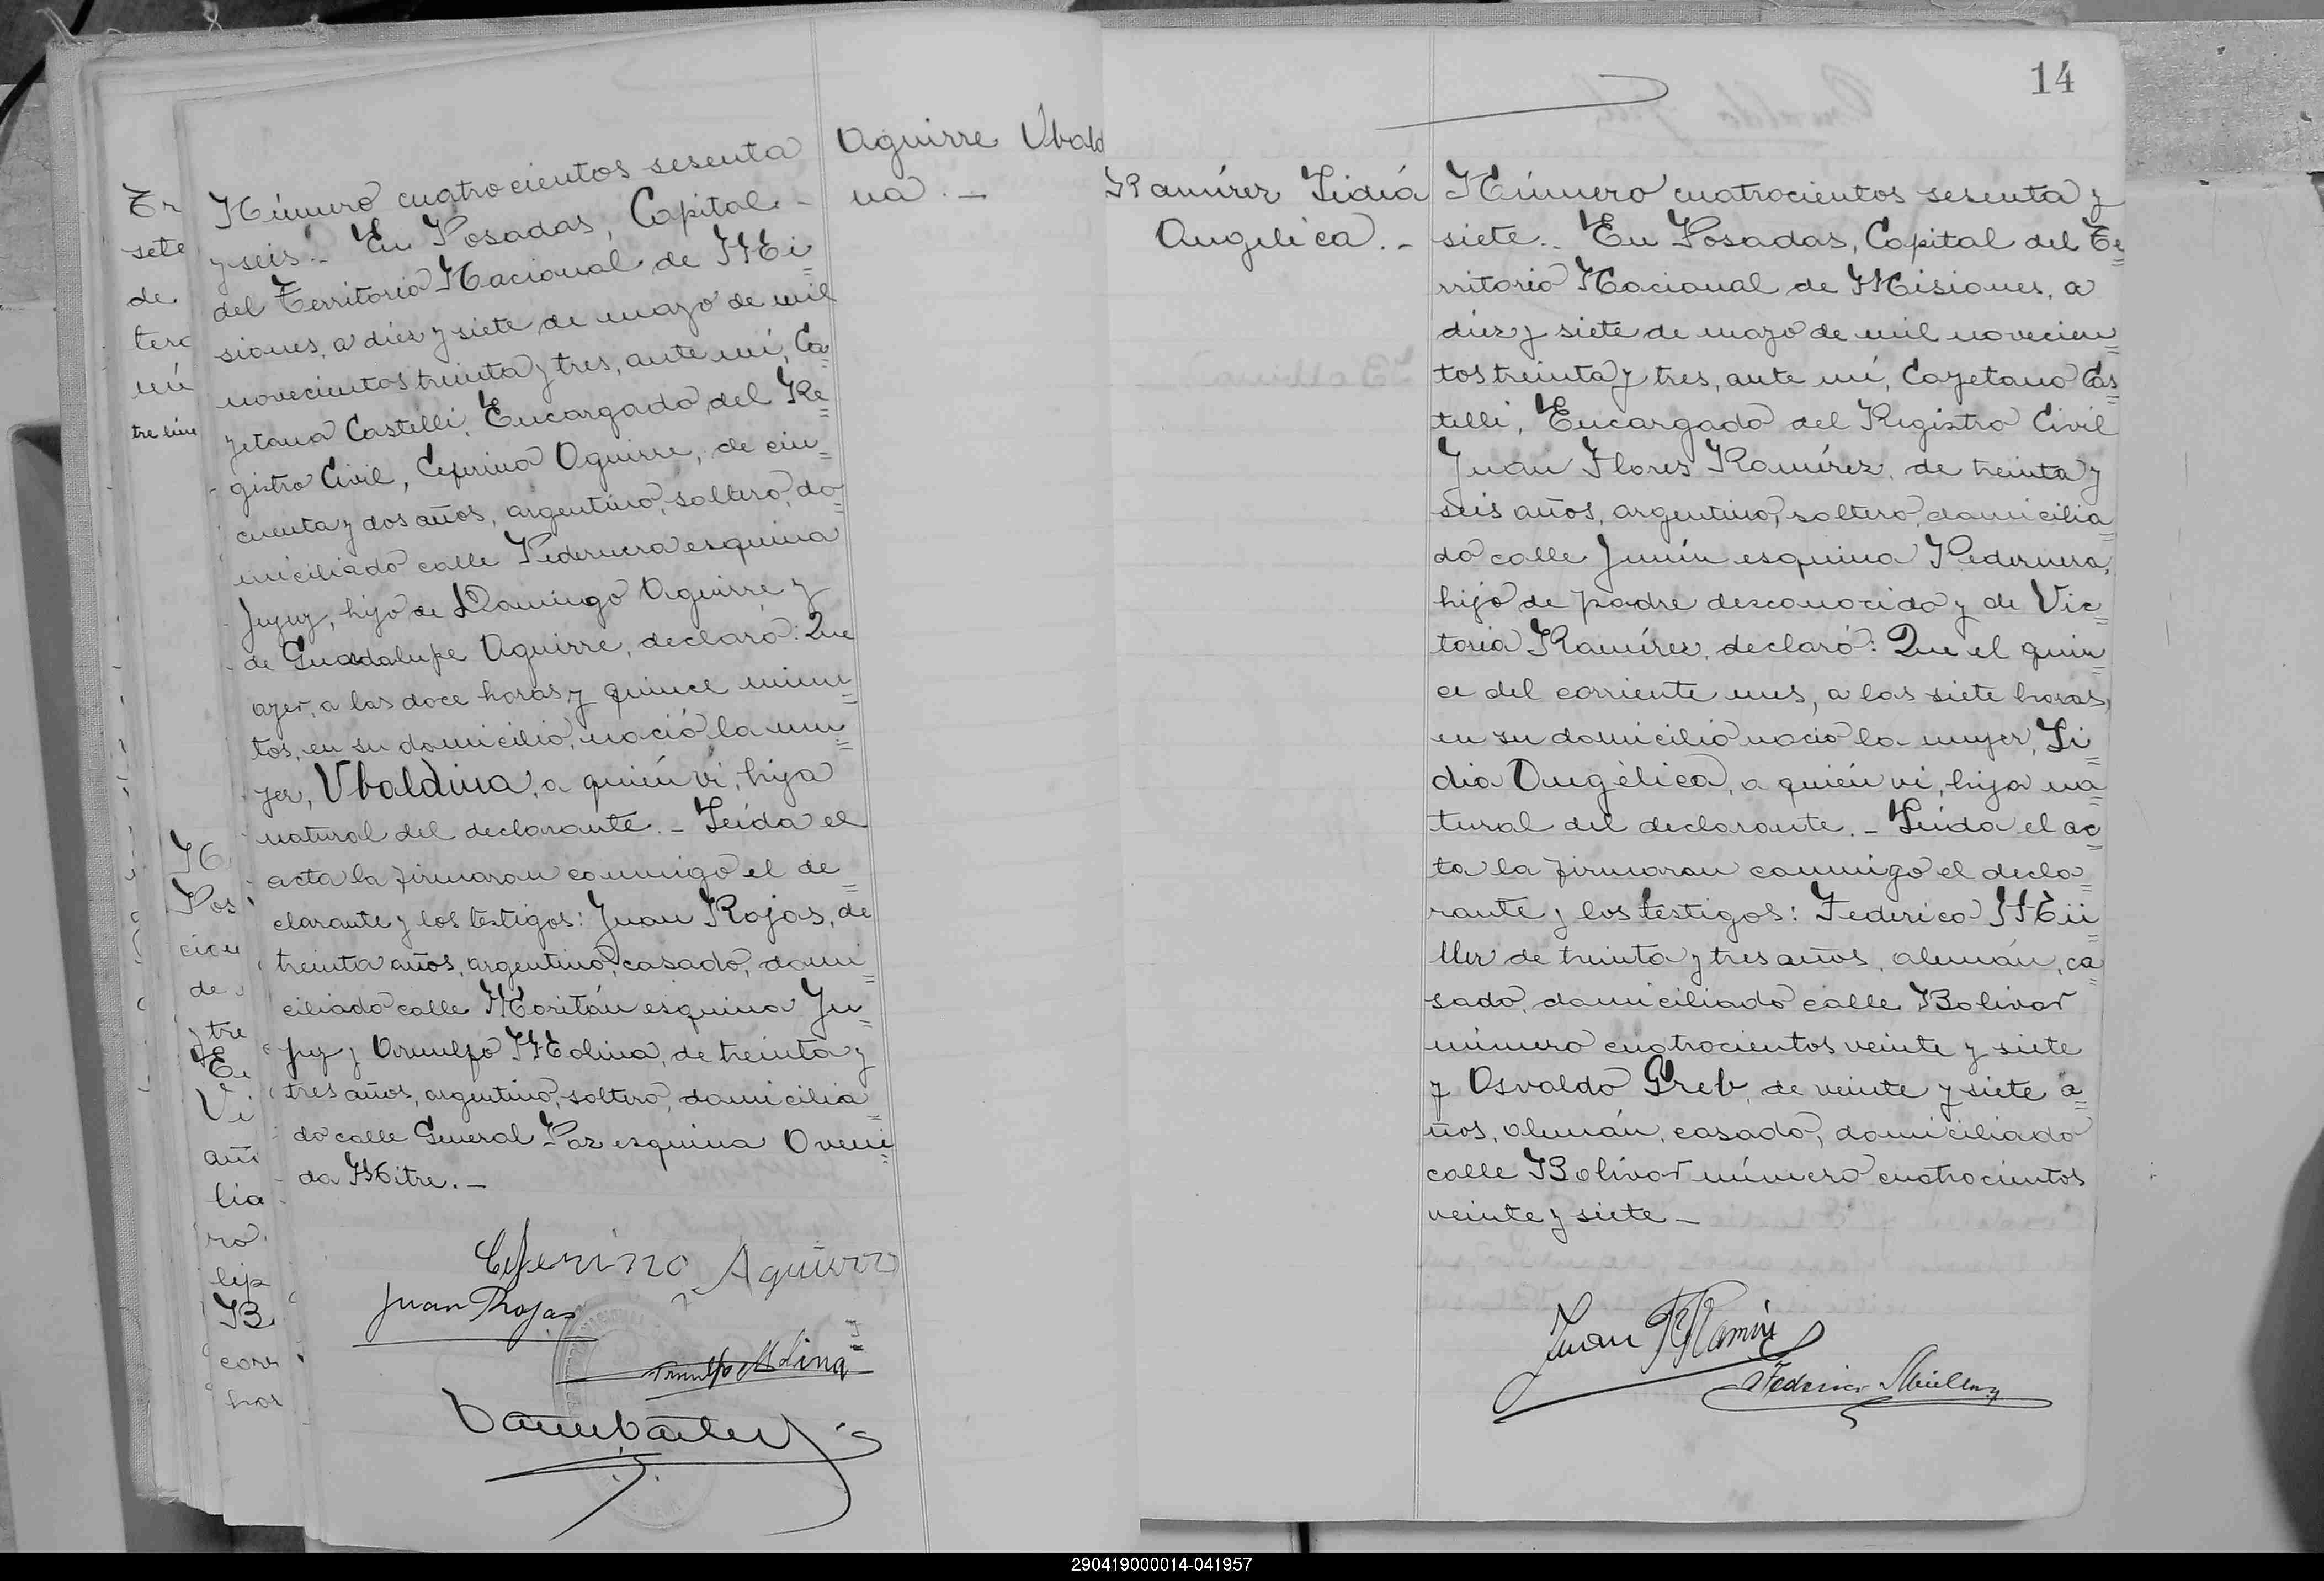 Aguirre Ubald
na.-
Número cuatrocientos sesenta
y seis.- En Posadas, Capital
del Territorio Nacional de Mi=
siones, a diez y siete de mayo de mil
novecientos treinta y tres, ante mí, Ca=
yetano Castelli, Encargado del Re=
gistro Civil, Ceferino Aguirre, de cin=
cuenta y dos años, argentino, soltero, do=
miciliado calle Pedernera esquina
Jujuy, hijo de Domingo Aguirre y
de Guadalupe Aguirre, declaró: Que
ayer, a las doce horas y quince minu=
tos, en su domicilio, nació la mu=
jer, Ubaldina, a quién ví, hija
natural del declarante.- Leída el
acta la firmaron conmigo el de=
clarante y los testigos: Juan Rojas, de
treinta años, argentino, casado, domi=
ciliado calle Moritán esquina Ju=
juy y Arnulfo Molina, de treinta y
tres años, argentino, soltero, domicilia=
do calle General Paz esquina Aveni=
da Mitre.-
Ceferino Aguirre
Juan Rojas
Arnulfo Molina
14
Ramírez Lidia
Angélica.-
Número cuatrocientos sesenta y
siete.- En Posadas, Capital del Te=
rritorio Nacional de Misiones, a
diez y siete de mayo de mil novecien=
tos treinta y tres, ante mí, Cayetano Cas=
telli, Encargado del Registro Civil
Juan Flores Ramírez, de treinta y
seis años, argentino, soltero, domicilia=
do calle Junín esquina Pedernera,
hijo de padre desconocido y de Vic=
toria Ramírez, declaró: Que el quin=
ce del corriente mes, a las siete horas,
en su domicilio nació la mujer, Li=
dia Angélica, a quién ví, hija na=
tural del declarante.- Leída el ac=
ta la firmaron conmigo el decla=
rante y los testigos: Federico Mü=
ller de treinta y tres años, alemán, ca=
sado, domiciliado calle Bolivar
número cuatrocientos veinte y siete
y Osvaldo Greb, de veinte y siete a=
ños, alemán, casado, domiciliado
calle Bolívar número cuatrocientos
veinte y siete.-
Juan F Ramírez
Federico Müller
290419000014-041957